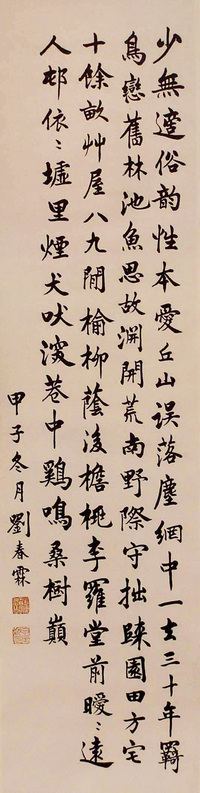 少無適俗韵性本愛丘山误落塵網中一去三十年羇
鳥戀舊林池魚思故渊開荒南野際守拙歸園田方宅
十餘畝艸屋八九閒榆柳蔭後檐桃李羅堂前曖〻遠
人邨依〻墟里煙犬吠深巷中鷄鳴桑樹巔
甲子冬月劉春霖